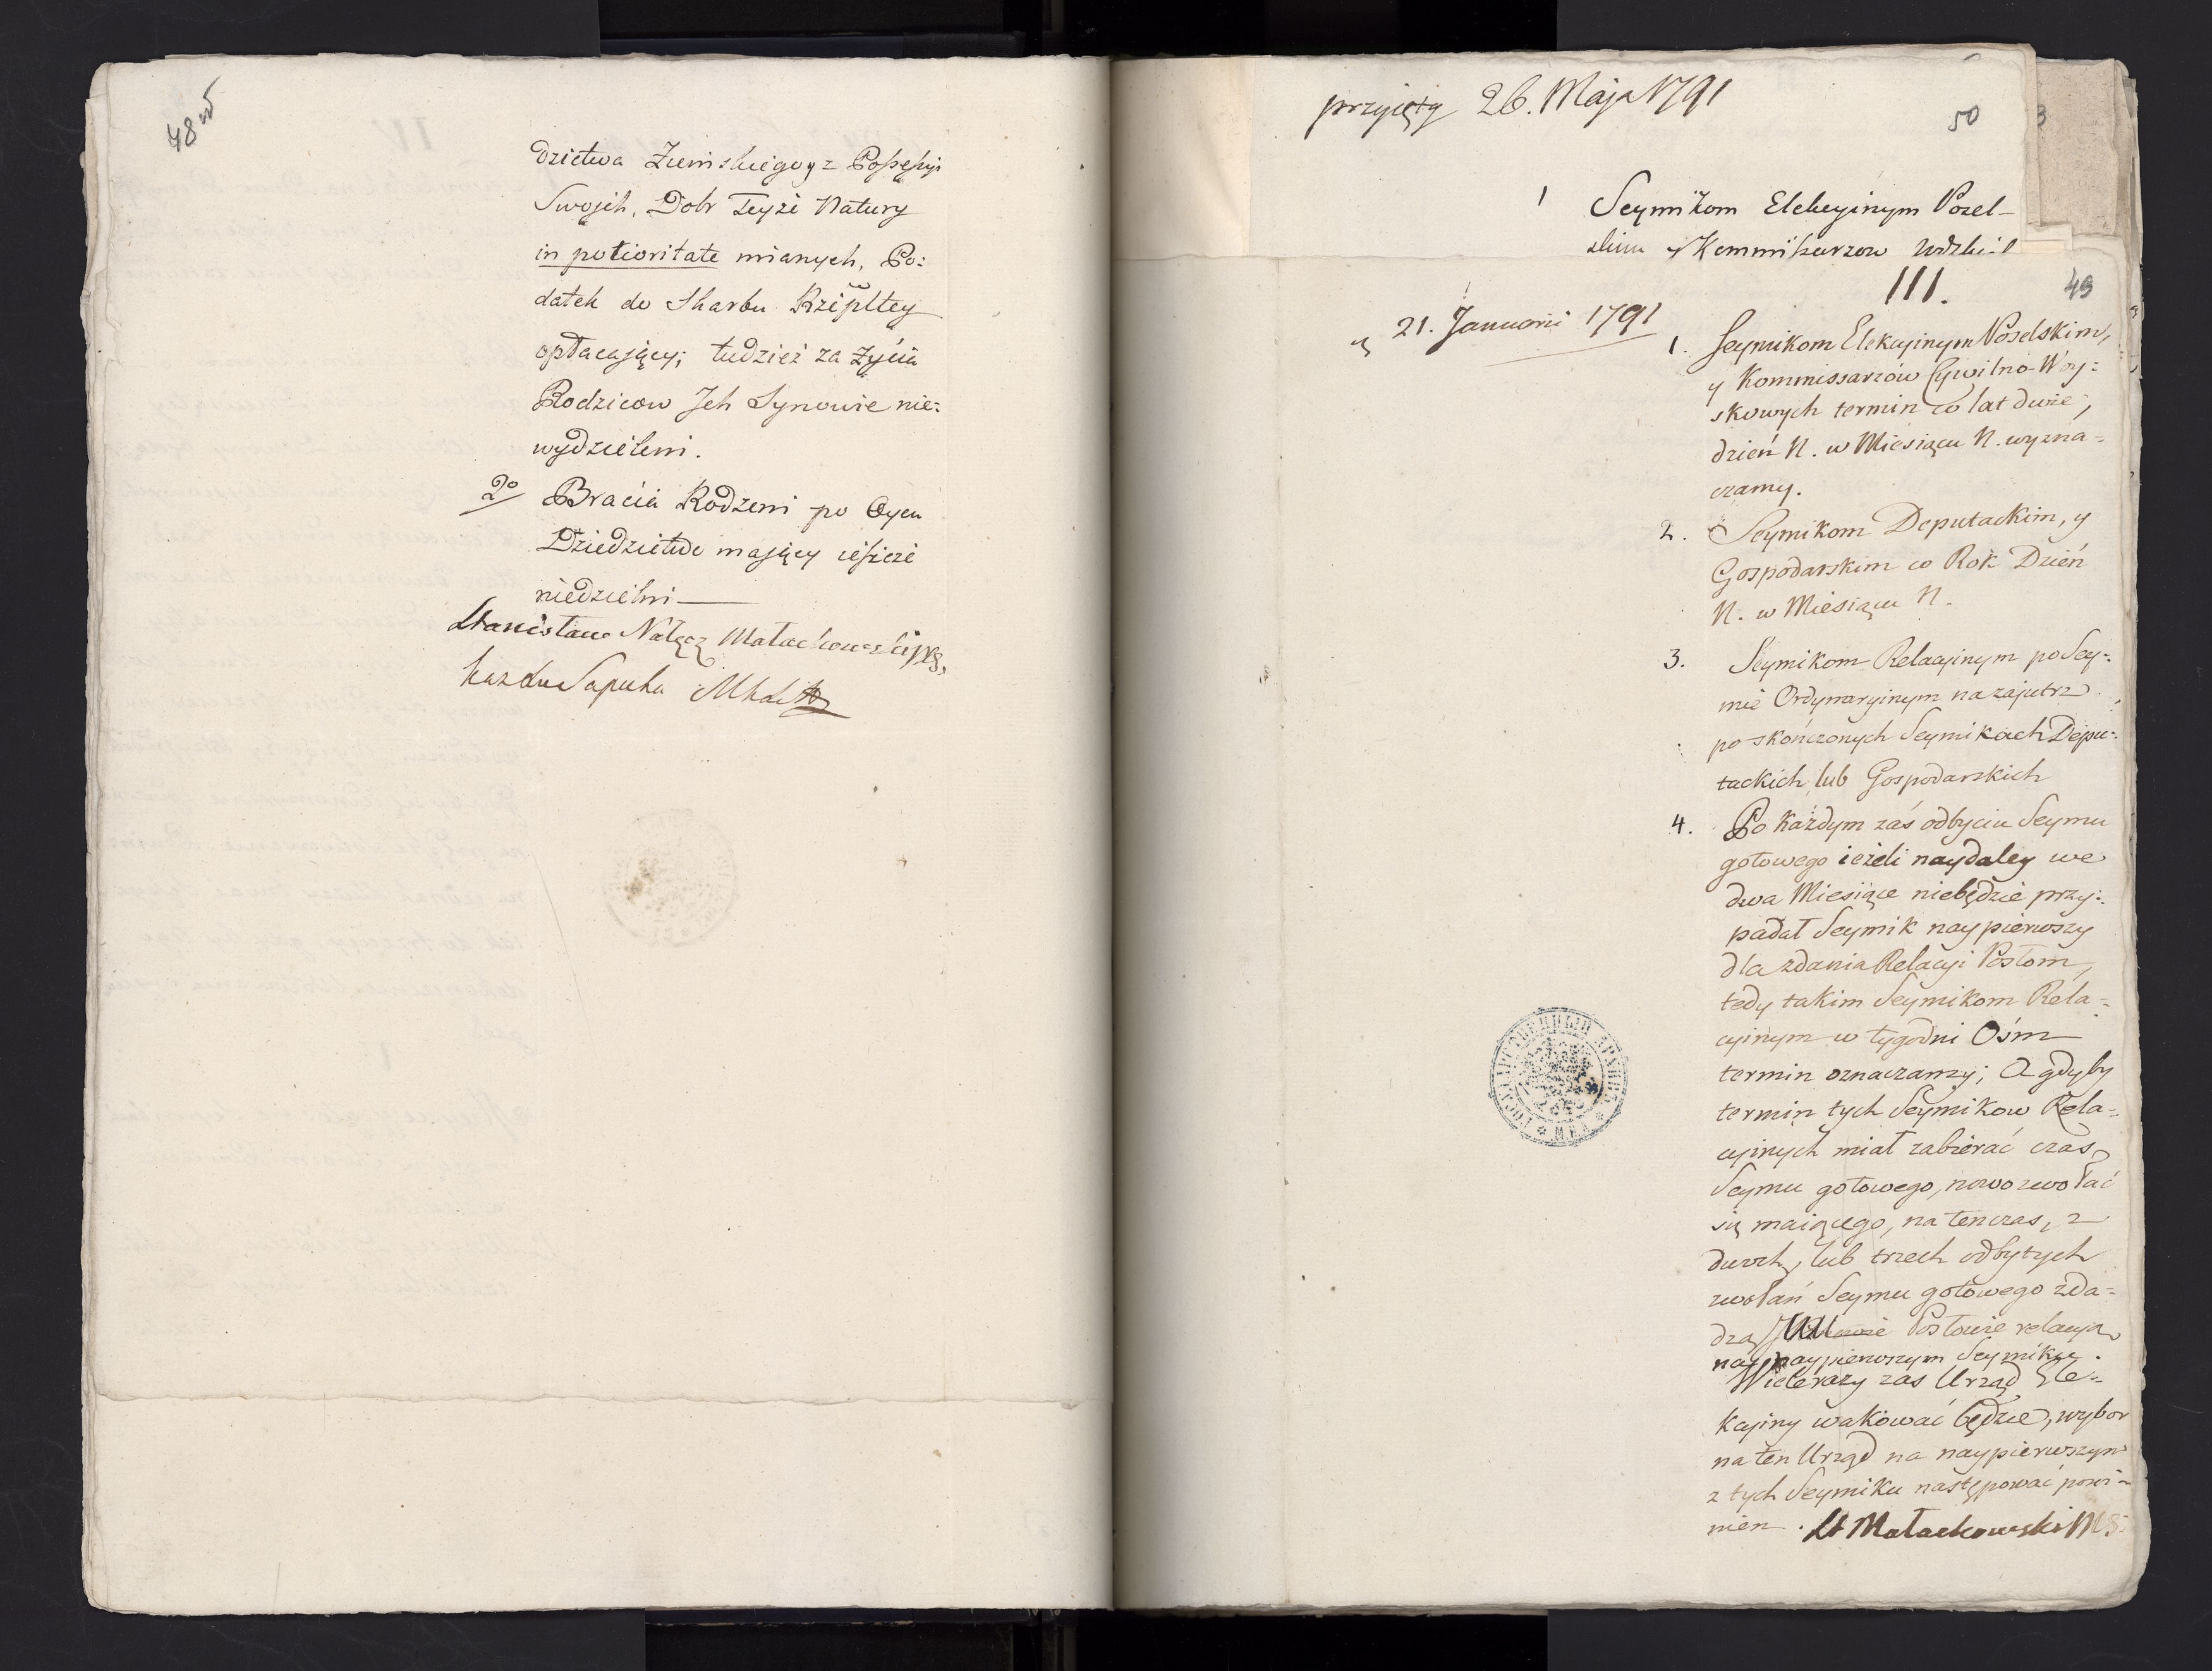 48v
dzictwa Ziemskiego y z Possessyi
Swojch, Dobr Teyże Natury
in potioritate mianych, Po:
datek do Skarbu Rzeipltey
opłacający; tudzież za życia
Rodzicow Jch Synowie nie:
wydzieleni.
2o Bracia Rodzeni po Oycu
Dziedzictwo mający ieszcze
niedzielni
Stanisław Nałęcz Małachowski
Sapieha
przyięty 26. Maja 1791
50
1 Seymikom Elekcyinym Posel-
skim y Kommissarzow
III.
49
21. Januarii 1791
1. Seymikom Elekcyinym Poselskim,
y Kommissarzów Cywilno-Woy:
skowych termin co lat dwie,
dzień N. w Miesiącu N. wyzna-
czamy.
2. Seymikom Deputackim, y
Gospodarskim co Rok Dzień
N. w Miesiącu N.
3. Seymikom Relacyinym po Sey:
mie Ordynaryinym nazajutrz
po skończonych Seymikach Depu:
tackich lub Gospodarskich
4. Po każdym zaś odbyciu Seymu
gotowego ieżeli naydaley we
dwa Miesiące niebędzie przy:
padał Seymik naypierwszy
dla zdania Relacyi Posłom,
tedy takim Seymikom Rela-
cyinym w tygodni Ośm
termin oznaczamy; A gdyby
termin tych Seymikow Rela-
cyinych miał zabierać czas
Seymu gotowego, nowo zwołać
się maiącego, na tenczas, z
dwoch, lub trzech odbytych
zwołań Seymu gotowego zda-
dzą Posłowie relacyą
na naypierwszym Seymiku.
Wielerazy zas Urząd Ele-
kcyiny wakować będzie, wybor
na ten Urząd na naypierwszym
z tych Seymiku następować powi-
nien. St Małachowski MS: